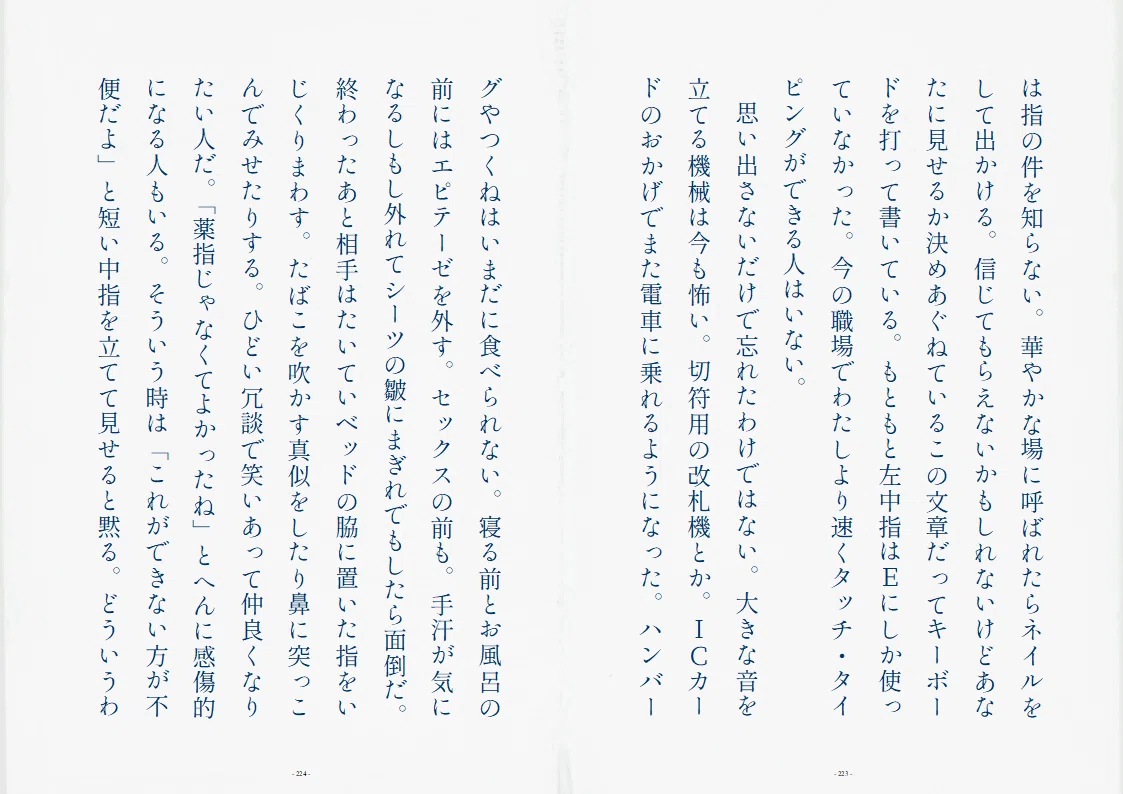 は指の件を知らない。華やかな場に呼ばれたらネイルを
して出かける。信じてもらえないかもしれないけどあな
たに見せるか決めあぐねているこの文章だってキーボー
ドを打って書いている。もともと左中指はEにしか使っ
ていなかった。今の職場でわたしより速くタッチ・タイ
ピングができる人はいない。
思い出さないだけで忘れたわけではない。大きな音を
立てる機械は今も怖い。切符用の改札機とか。ICカー
ドのおかげでまた電車に乗れるようになった。ハンバー
- 223 -
グやつくねはいまだに食べられない。寝る前とお風呂の
前にはエピテーゼを外す。セックスの前も。手汗が気に
なるしもし外れてシーツの皺にまぎれでもしたら面倒だ。
終わったあと相手はたいていベッドの脇に置いた指をい
じくりまわす。たばこを吹かす真似をしたり鼻に突っこ
んでみせたりする。ひどい冗談で笑いあって仲良くなり
たい人だ。「薬指じゃなくてよかったね」とへんに感傷的
になる人もいる。そういう時は「これができない方が不
便だよ」と短い中指を立てて見せると黙る。どういうわ
- 224 -